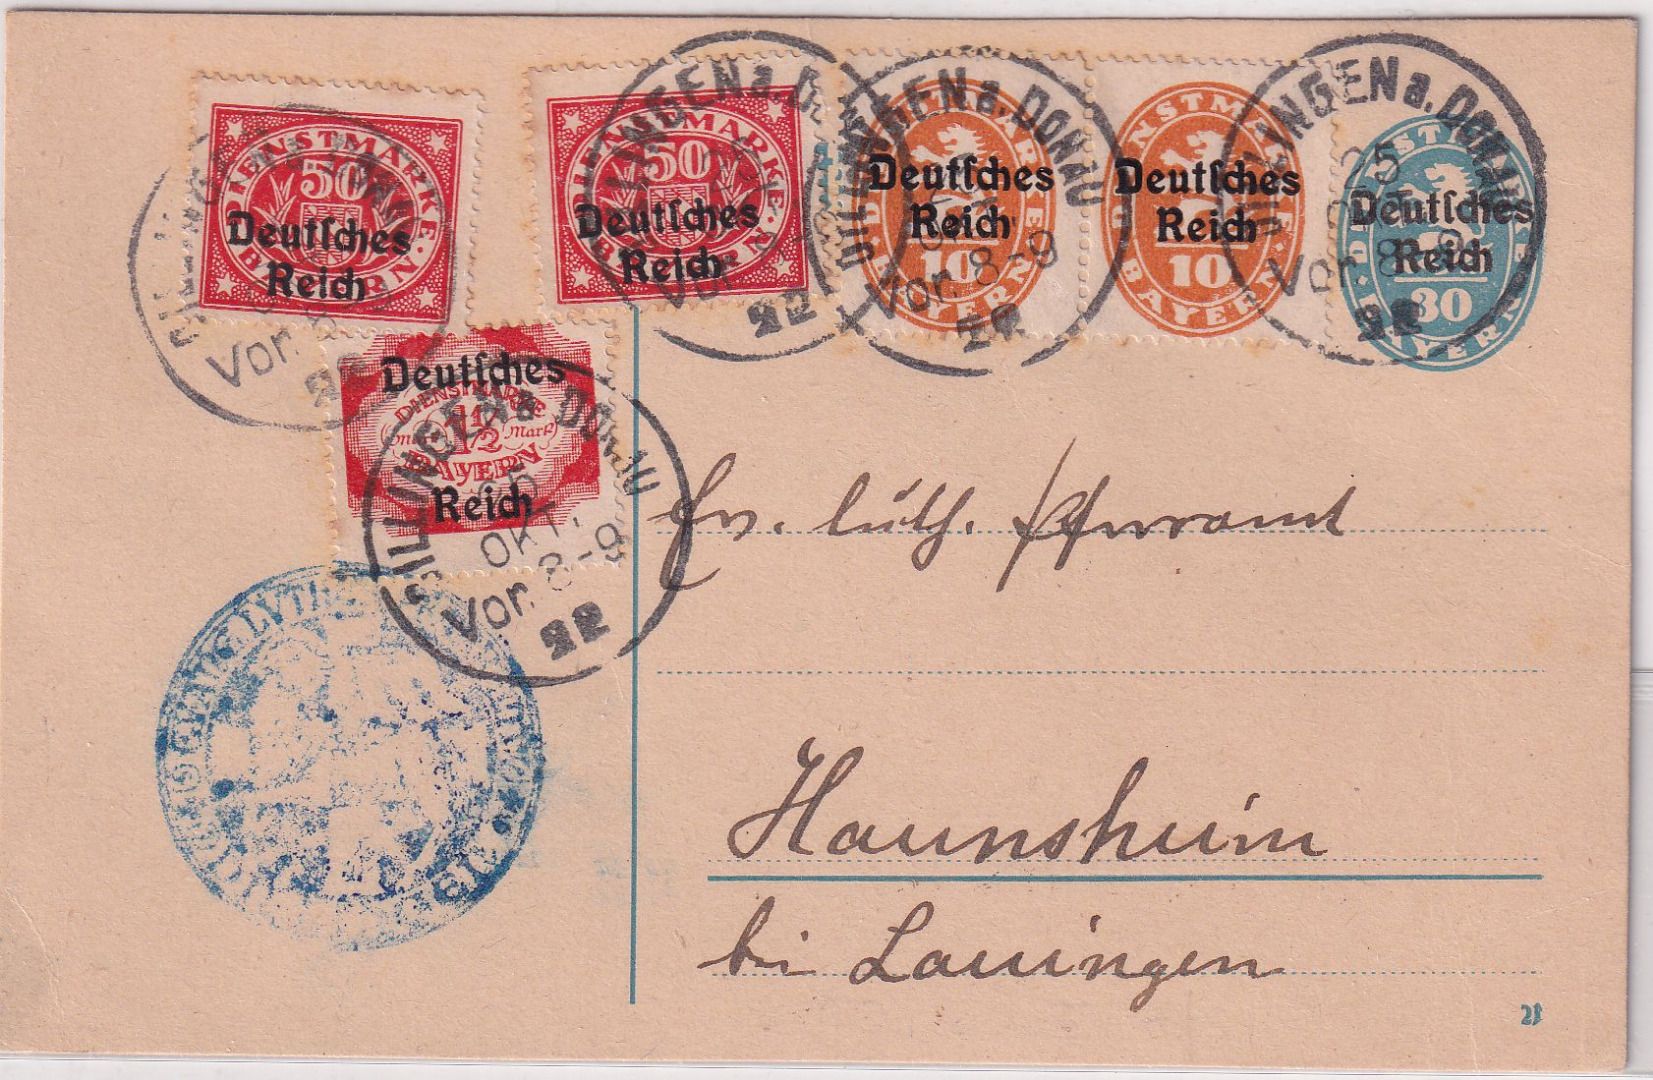 DIENSTMARKE
50
BAYERN
Deutsches
Reich
DIENSTMARKE
50
BAYERN
Deutsches
Reich
DIENSTMARKE
10
BAYERN
Deutsches
Reich
DIENSTMARKE
10
BAYERN
Deutsches
Reich
DIENSTMARKE
30
BAYERN
Deutsches
Reich
Deutsches
DIENSTMARKE
1½ Mark
BAYERN
Reich
DILLINGEN a. DONAU
Vor. 8-9
22
DILLINGEN a. DONAU
Vor. 8-9
22
DILLINGEN a. DONAU
OKT.
Vor. 8-9
22
DILLINGEN a. DONAU
25
OKT.
Vor. 8-9
22
DILLINGEN a. DONAU
25
OKT.
Vor. 8-9
22
Ev. luth. Pfarramt
Haunsheim
bei Lauingen
21